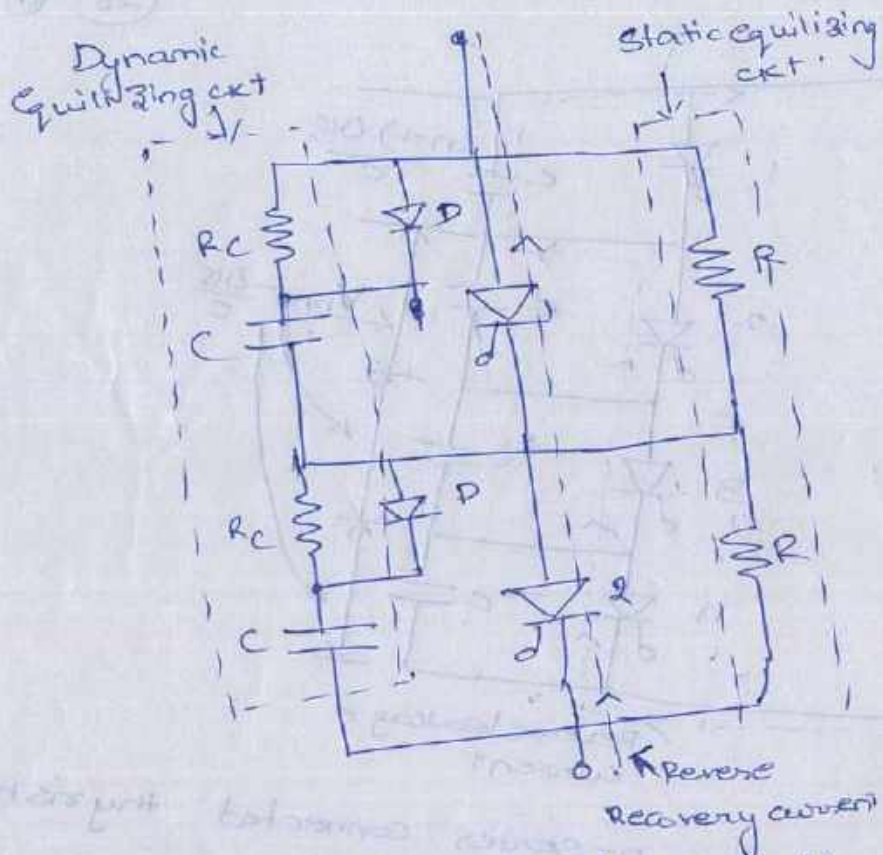 Dynamic
Equilizing ckt
Static equilizing
ckt.
Rc
D
R
C
Rc
D
R
2
C
Reverse
Recovery current